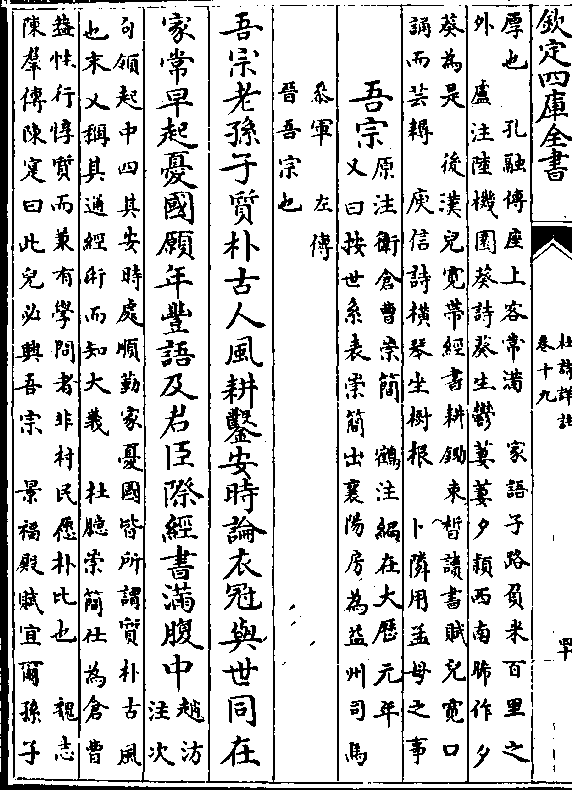 欽定四庫全書
杜詩詳註
卷十九
罕
厚也 孔融傳座上客常滿 家語子路負米百里之
外 盧注陸機園葵詩葵生鬱萋萋夕穎西南晞作夕
葵為是 後漢兒寬帶經書耕鋤束晳讀書賦兒寬口
誦而芸耨 庾信詩橫琴坐樹根 卜隣用孟母之事
吾宗
原注衛倉曹崇簡 鶴注編在大厯元年
又曰按世系表崇簡出襄陽房為益州司馬
叅軍 左傳
晉吾宗也
吾宗老孫子質朴古人風耕鑿安時論衣冠與世同在
家常早起憂國願年豐語及君臣際經書滿腹中
趙汸
注次
句領起中四其安時處順勤家憂國皆所謂質朴古風
也末又稱其通經術而知大義 杜臆崇簡仕為倉曹
葢性行惇質而兼有學問者非村民愿朴比也 魏志
陳羣傳陳寔曰此兒必興吾宗 景福殿賦宜爾孫子